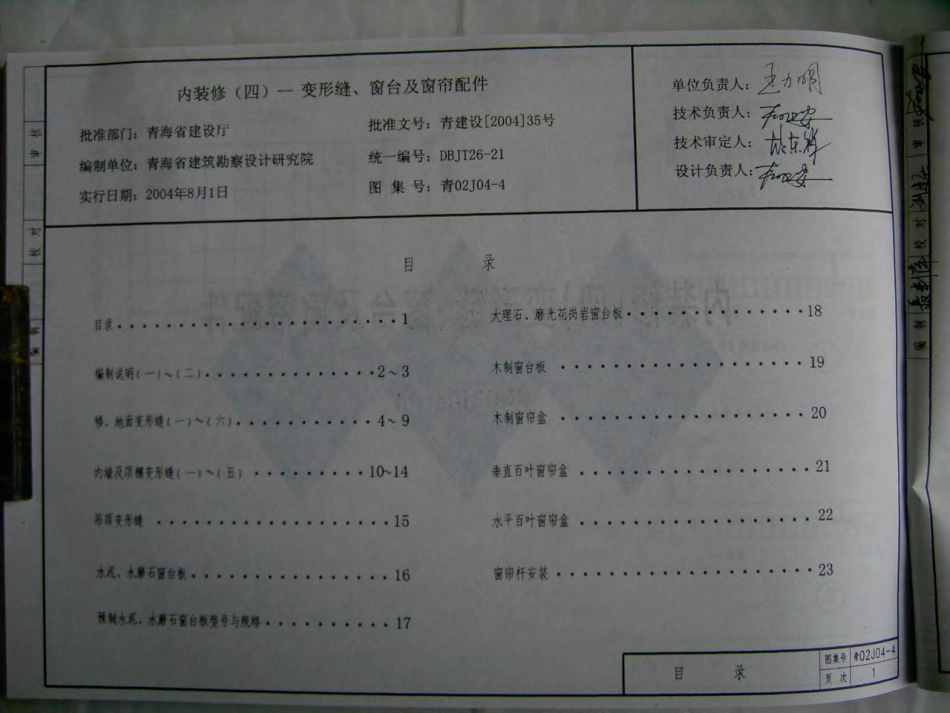 内装修（四）— 变形缝、窗台及窗帘配件
批准部门：青海省建设厅
批准文号：青建设[2004]35号
编制单位：青海省建筑勘察设计研究院
统一编号：DBJT26-21
实行日期：2004年8月1日
图 集 号：青02J04-4
单位负责人：王力明
技术负责人：
技术审定人：
设计负责人：
目 录
目录 1
编制说明(一)～(二) 2～3
楼、地面变形缝(一)～(六) 4～9
内墙及顶棚变形缝(一)～(五) 10～14
吊顶变形缝 15
水泥、水磨石窗台板 16
预制水泥、水磨石窗台板型号与规格 17
大理石、磨光花岗岩窗台板 18
木制窗台板 19
木制窗帘盒 20
垂直百叶窗帘盒 21
水平百叶窗帘盒 22
窗帘杆安装 23
目 录
图集号 青02J04-4
页 次 1
审 核
校 对
编 制
审 核
校 对
编 制